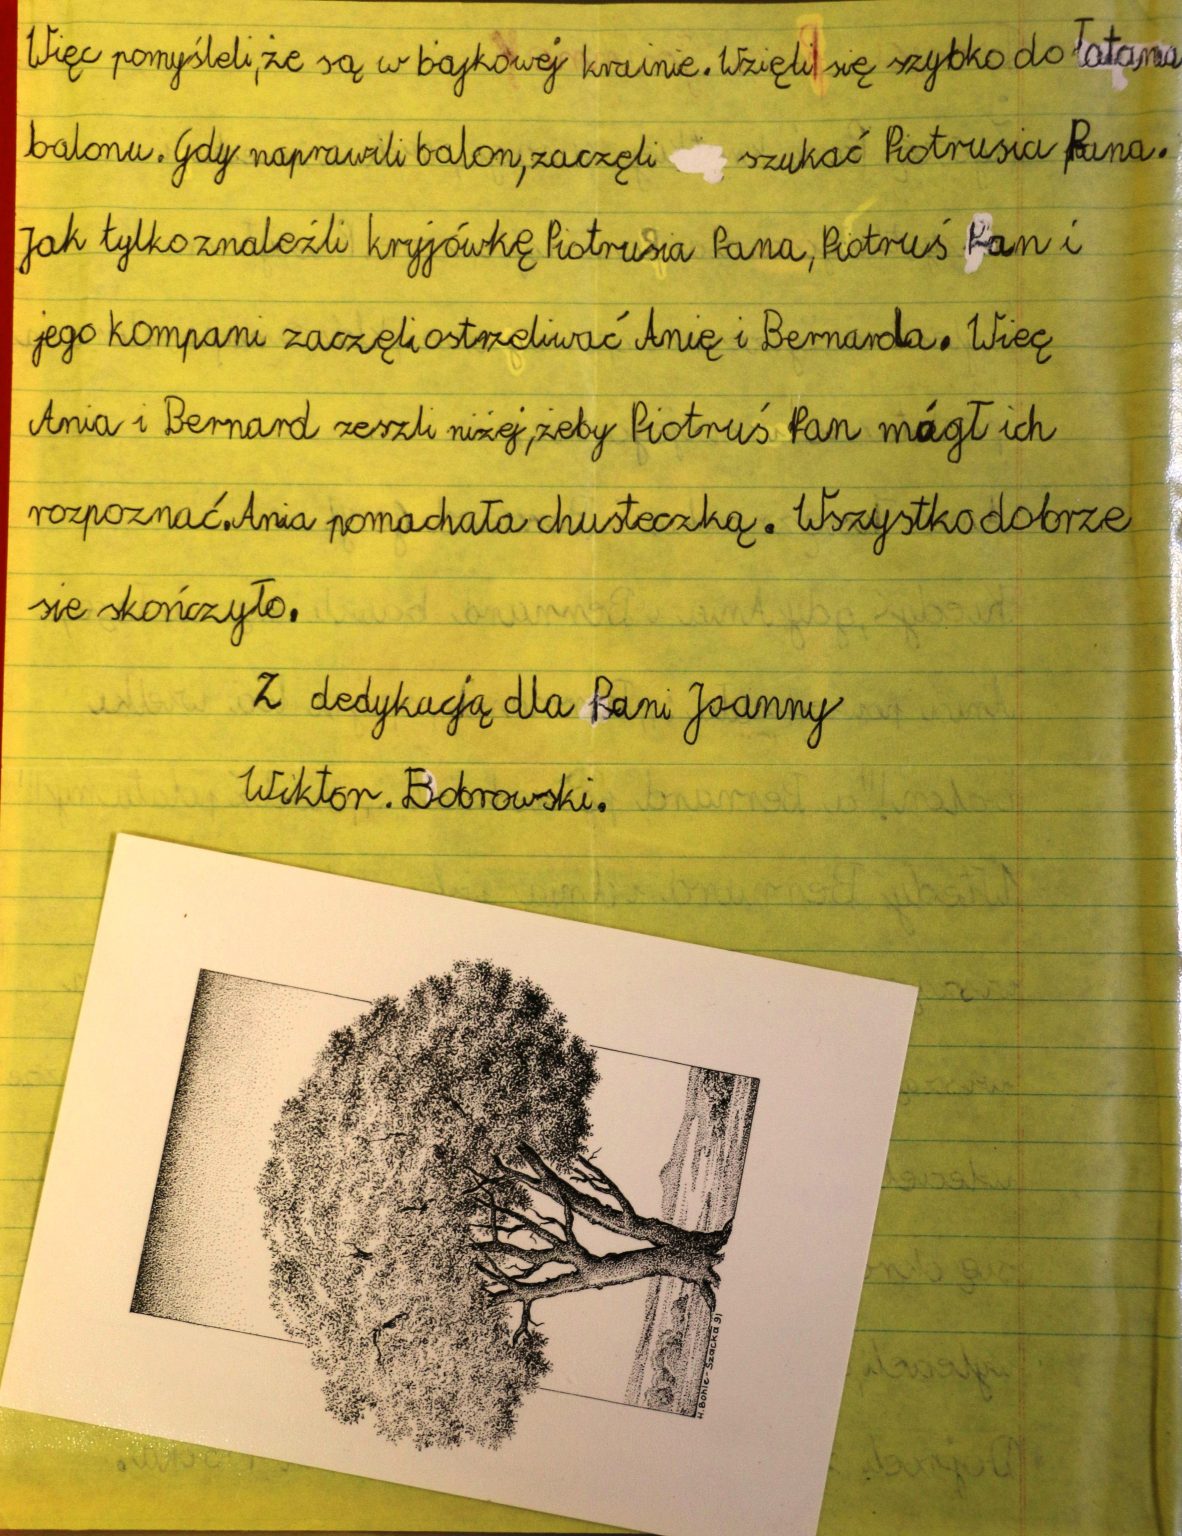 Więc pomyśleli, że są w bajkowej krainie. Wzięli się szybko do łatania
balonu. Gdy naprawili balon, zaczęli szukać Piotrusia Pana.
Jak tylko znaleźli kryjówkę Piotrusia Pana, Piotruś Pan i
jego kompani zaczęli ostrzeliwać Anię i Bernarda. Więc
Ania i Bernard zeszli niżej, żeby Piotruś Pan mógł ich
rozpoznać. Ania pomachała chusteczką. Wszystko dobrze
się skończyło.
Z dedykacją dla Pani Joanny
Wiktor. Bobrowski.
H. Bohle-Szacka 91